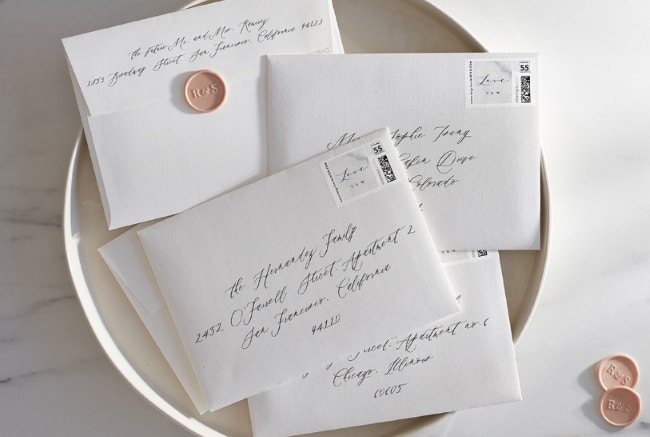 the future Mr. and Mrs. Reney
2853 Broadway Street San Francisco, California 94123
R&S
55
Love
Sophie Young
Drive
Colorado
55
Love
the Hernandez Family
2452 O'Farrell Street Apartment 2
San Francisco, California
Street, Apartment no 6
Chicago, Illinois
60605
R&S
R&S